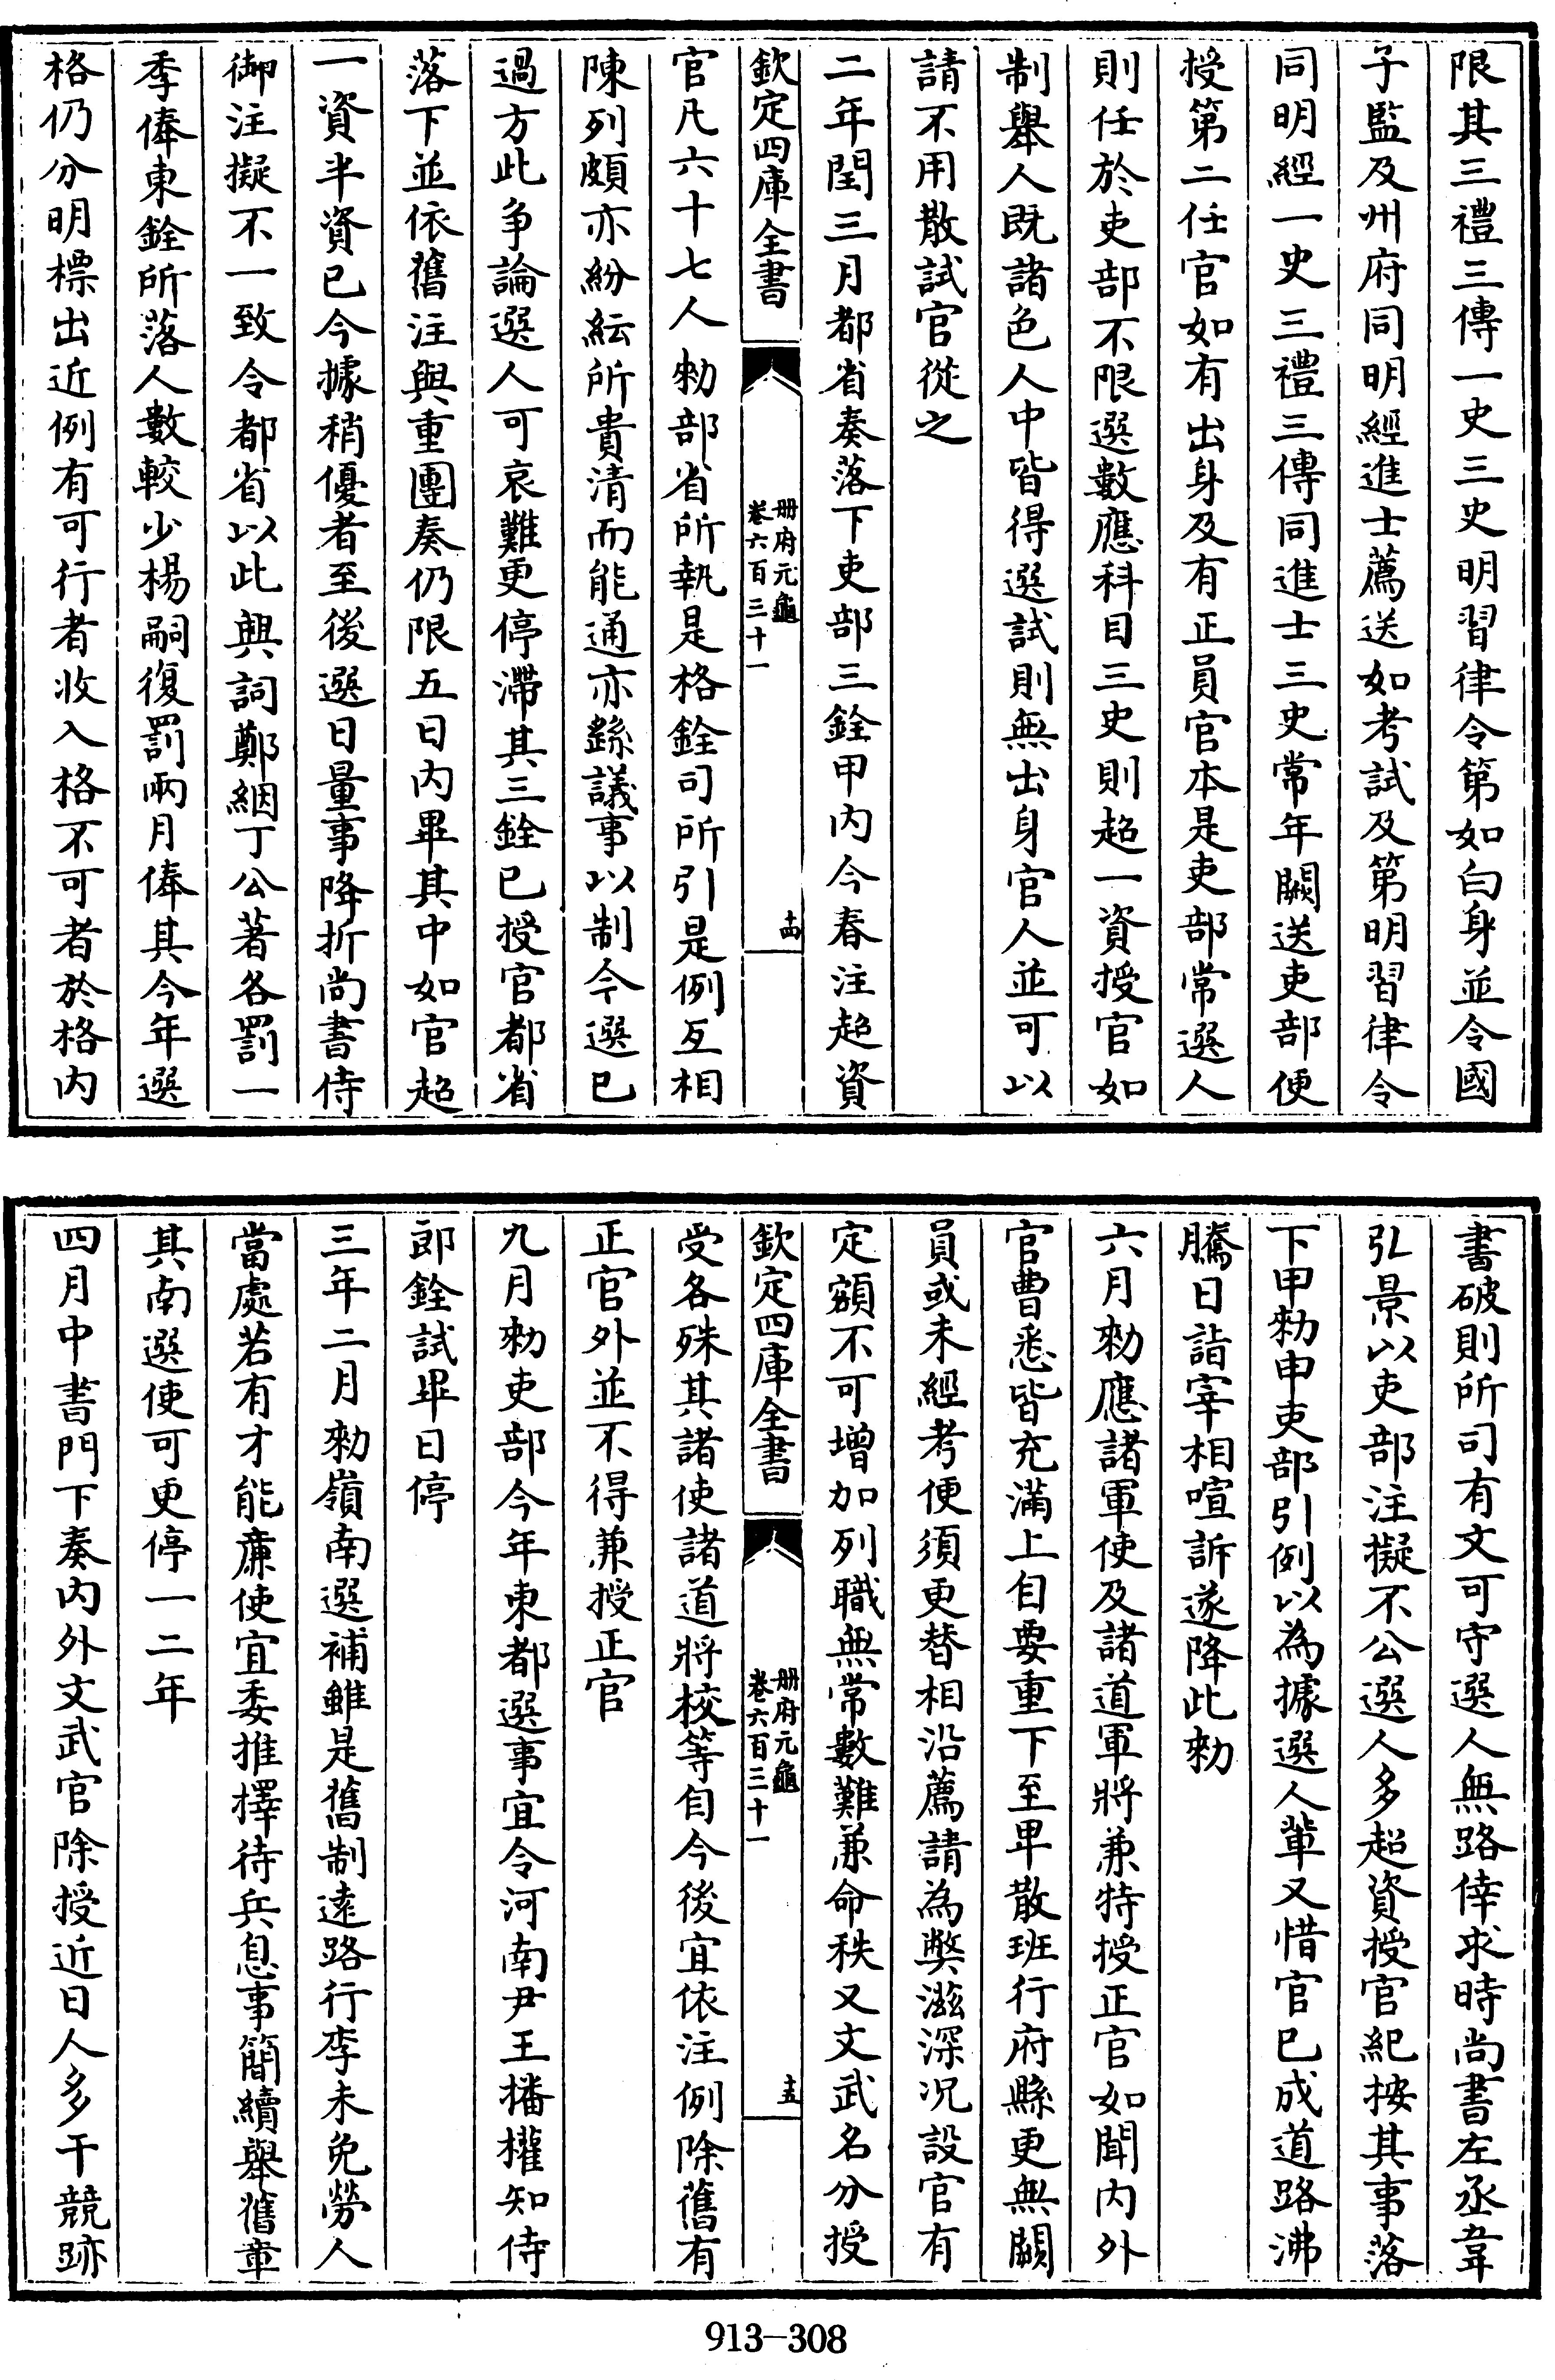 限其三禮三傳一史三史明習律令第如白身並令國
子監及州府同明經進士薦送如考試及第明習律令
同明經一史三禮三傳同進士三史常年闕送吏部便
授第二任官如有出身及有正員官本是吏部常選人
則任於吏部不限選數應科目三史則超一資授官如
制舉人既諸色人中皆得選試則無出身官人並可以
請不用散試官從之
二年閏三月都省奏落下吏部三銓甲内今春注超資
欽定四庫全書
册府元龜
卷六百三十一
十四
官凡六十七人勑部省所執是格銓司所引是例互相
陳列頗亦紛紜所貴清而能通亦繇議事以制今選已
過方此争論選人可哀難更停滯其三銓已授官都省
落下並依舊注與重團奏仍限五日内畢其中如官超
一資半資已今據稍優者至後選日量事降折尚書侍
御注擬不一致令都省以此興詞鄭絪丁公著各罰一
季俸東銓所落人數較少楊嗣復罰兩月俸其今年選
格仍分明標出近例有可行者收入格不可者於格内
書破則所司有文可守選人無路倖求時尚書左丞韋
弘景以吏部注擬不公選人多超資授官紀按其事落
下甲勑申吏部引例以為據選人輩又惜官已成道路沸
騰日詣宰相喧訴遂降此勑
六月勑應諸軍使及諸道軍將兼特授正官如聞内外
官曹悉皆充滿上自要重下至卑散班行府縣更無闕
員或未經考便須更替相沿薦請為弊滋深况設官有
定額不可增加列職無常數難兼命秩又文武名分授
欽定四庫全書
册府元龜
卷六百三十一
十五
受各殊其諸使諸道將校等自今後宜依注例除舊有
正官外並不得兼授正官
九月勑吏部今年東都選事宜令河南尹王播權知侍
郎銓試畢日停
三年二月勑嶺南選補雖是舊制遠路行李未免勞人
當處若有才能廉使宜委推擇待兵息事簡續舉舊章
其南選使可更停一二年
四月中書門下奏内外文武官除授近日人多干競跡
913-308